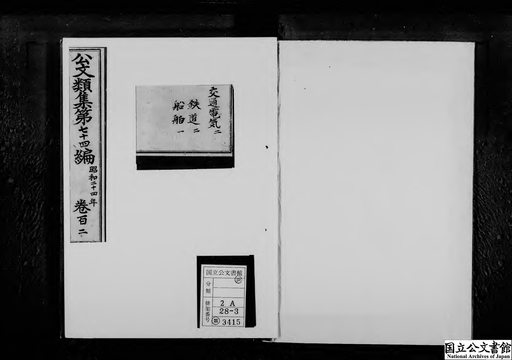 公文類集第七十四編
昭和二十四年
巻百二
交通電気二
鉄道二
船舶一
国立公文書館
分類
排架番号
2A
28-3
3415
国立公文書館
National Archives of Japan